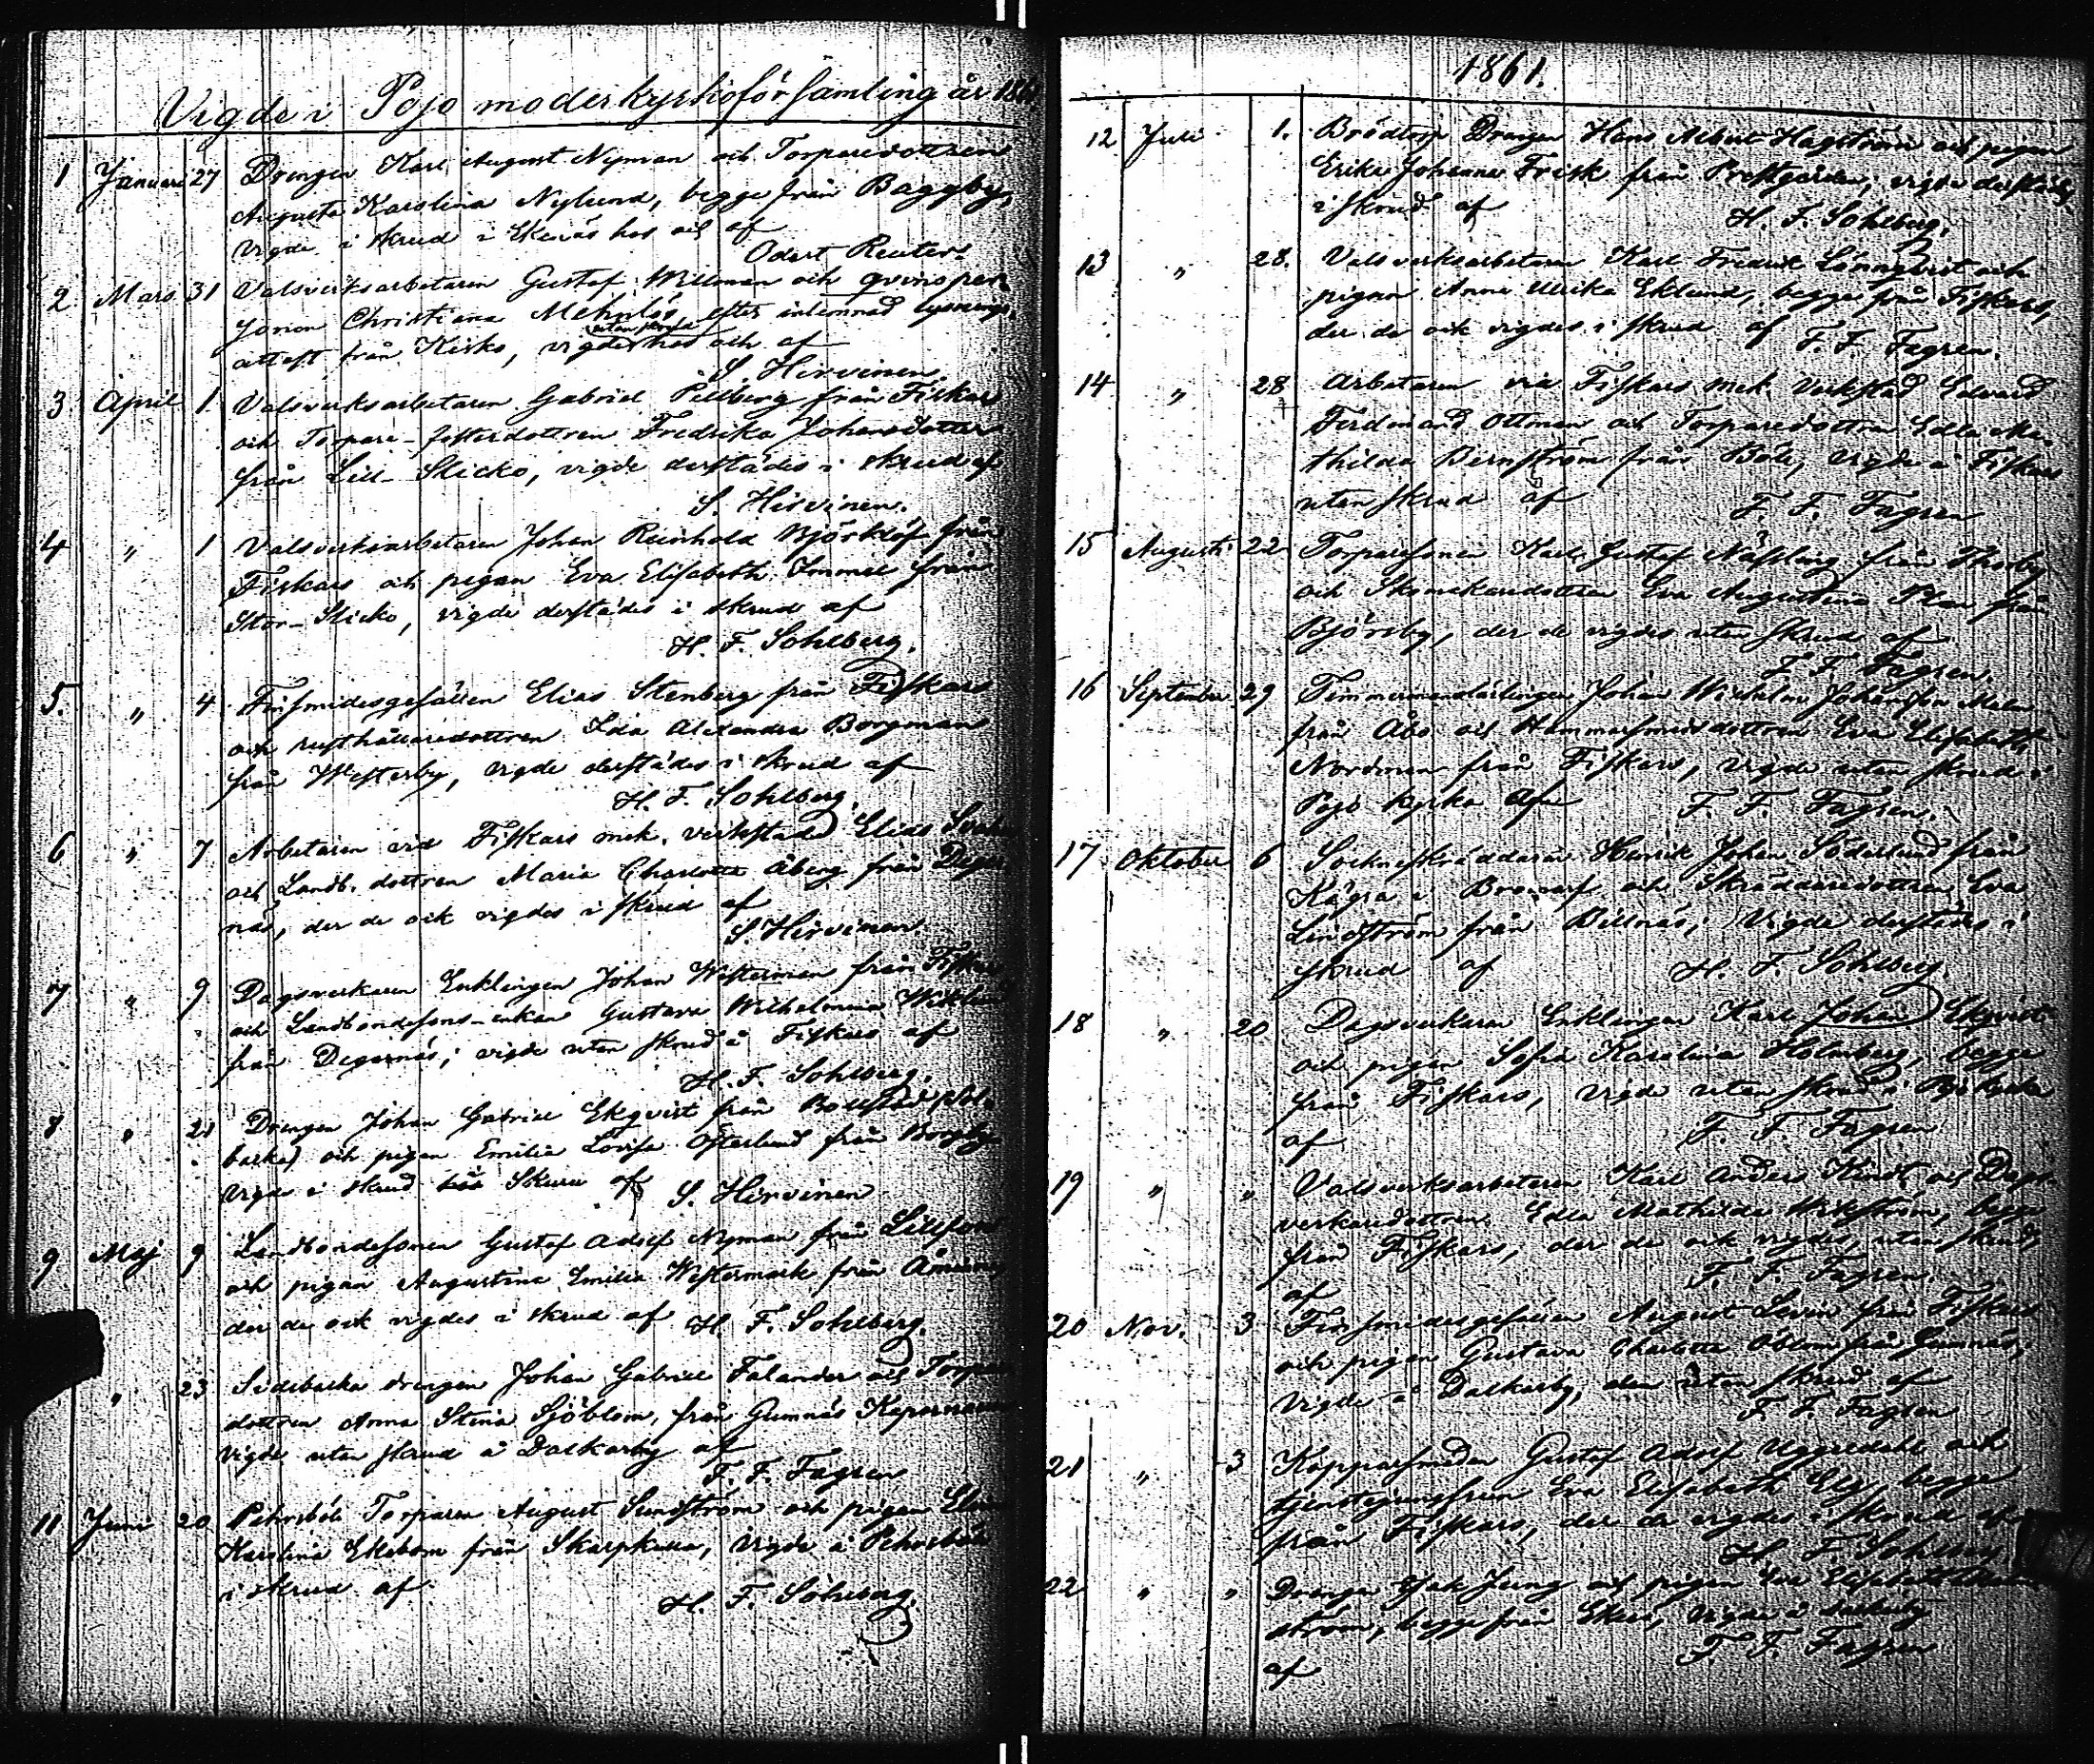 Vigde i Pojo moderkyrkoförsamling år 1861
1 Januari 27 Drengen Karl August Nyman och Torparedottren
Augusta Karolina Nylund, begge från Baggby,
vigde i skrud i Ekenäs hos och af
Odert Reuter.
2 Mars 31 Valsverksarbetaren Gustaf Willman och qvinsper-
sonen Christiana Mehnlös, efter inlemnad lysnings-
attest från Kisko, vigde utan skrud hos och af
S. Hirvinen
3 April 1 Valsverksarbetaren Gabriel Pellberg från Fiskars
och Torpare-fosterdottren Fredrika Johansdotter
från Lill-Slicko, vigde derstädes i skrud af
S. Hirvinen.
4 " 1 Valsverksarbetaren Johan Reinhold Björklöf från
Fiskars och pigan Eva Elisabeth Immel från
Stor-Slicko, vigde derstädes i skrud af
H. F. Sohlberg.
5. " 4 Finsmidesgesällen Elias Stenberg från Fiskars
och rusthållaredottren Ida Alexandra Borgman
från Westerby, vigde derstädes i skrud af
H. F. Sohlberg.
6 " 7 Arbetaren vid Fiskars mek. verkstad Elias
och Landb. dottren Maria Charlotta Åberg från Deger-
näs, der de ock vigdes i skrud af
S. Hirvinen
7 " 9 Dagsverkaren Enklingen Johan Westerman från Fiskars
och Landbondesons-enkan Gustava Wilhelmina Wiklund
från Degernäs; vigde utan skrud å Fiskars af
H. F. Sohlberg.
8 " 21 Drengen Johan Gabriel Ekqvist från Bollstad (Sol-
backa) och pigan Emilia Lovisa Österlund från Borgby
vigde i skrud hos Skuru af S. Hirvinen
9 Maj 9 Landbondesonen Gustaf Adolf Nyman från
och pigan Augustina Emilia Westermark från Åminne,
der de ock vigdes i skrud af H. F. Sohlberg.
" 23 Sidsbacka drengen Johan Gabriel Falander och Torpare
dottren Anna Stina Sjöblom, från Gumnäs Kapernaum
vigde utan skrud å Dalkarby af
F. F. Fagren
11 Juni 20 Pehrsböle Torparen August Sundström och pigan
Karolina Ekebom från Skarpkulla, vigde å Pehrsböle
i skrud af
H. F. Sohlberg.
1861.
12 Juli 1. Brödtorp Drengen Hans Albert Hagström och pigan
Erika Johanna Frisk från Prestgården; vigde derstädes
i skrud af H. F. Sohlberg.
13 " 28. Valsverksarbetaren Karl Fredrik Lönnqvist och
pigan Anna Ulrika Eklund, begge från Fiskars,
der de ock vigdes i skrud af F. F. Fagren.
14 " 28 Arbetaren vid Fiskars mek. Verkstad Edvard
Ferdinand Ottman och Torparedottren Edla Ma-
thilda Bernström från Böle, vigde å Fiskars
utan skrud af F. F. Fagren
15 Augusti 22 Torparesonen Karl Gustaf Näsling från Thorby
och Skomakaredottren Eva Augustina Plan från
Björsby, der de vigdes utan skrud af
F. F. Fagren.
16 September 29 Timmermanslärlingen Johan Wilhelm Johansson Malm
från Åbo och Hammarsmedsdottren Eva Elisabeth
Nordman från Fiskars, vigde utan skrud i
Pojo kyrka af F. F. Fagren.
17 Oktober 6 Sockneskräddaren Henrik Johan Söderlund från
Kägra i Bromarf och Skräddaredottren Eva
Lindström från Billnäs; Vigde derstädes i
skrud af H. F. Sohlberg
18 " 20 Dagsverkaren Enklingen Karl Johan Ekqvist
och pigan Sofia Karolina Holmberg, begge
från Fiskars, vigde utan skrud i Pojo kyrka
af F. F. Fagren
19 " " Valsverksarbetaren Karl Anders Kindt och Dags-
verkaredottren Edla Mathilda Wikström, begge
från Fiskars, der de ock vigdes, utan skrud,
af F. F. Fagren.
20 Nov. 3 Finsmidesgesällen August Levin från Fiskars
och pigan Gustava Charlotta Öblom från Gumnäs,
Vigde å Dalkarby, utan skrud af
F. F. Fagren
21 " 3 Kopparsmeden Gustaf Adolf Uggredahl och
tjenstejungfrun Eva Elisabeth Elg, begge
från Fiskars, der de vigdes i skrud af
H. F. Sohlberg
22 " " Drengen Isak Jung och pigan Eva Elisabeth
ström, begge från Ekera, vigde å
af F. F. Fagren